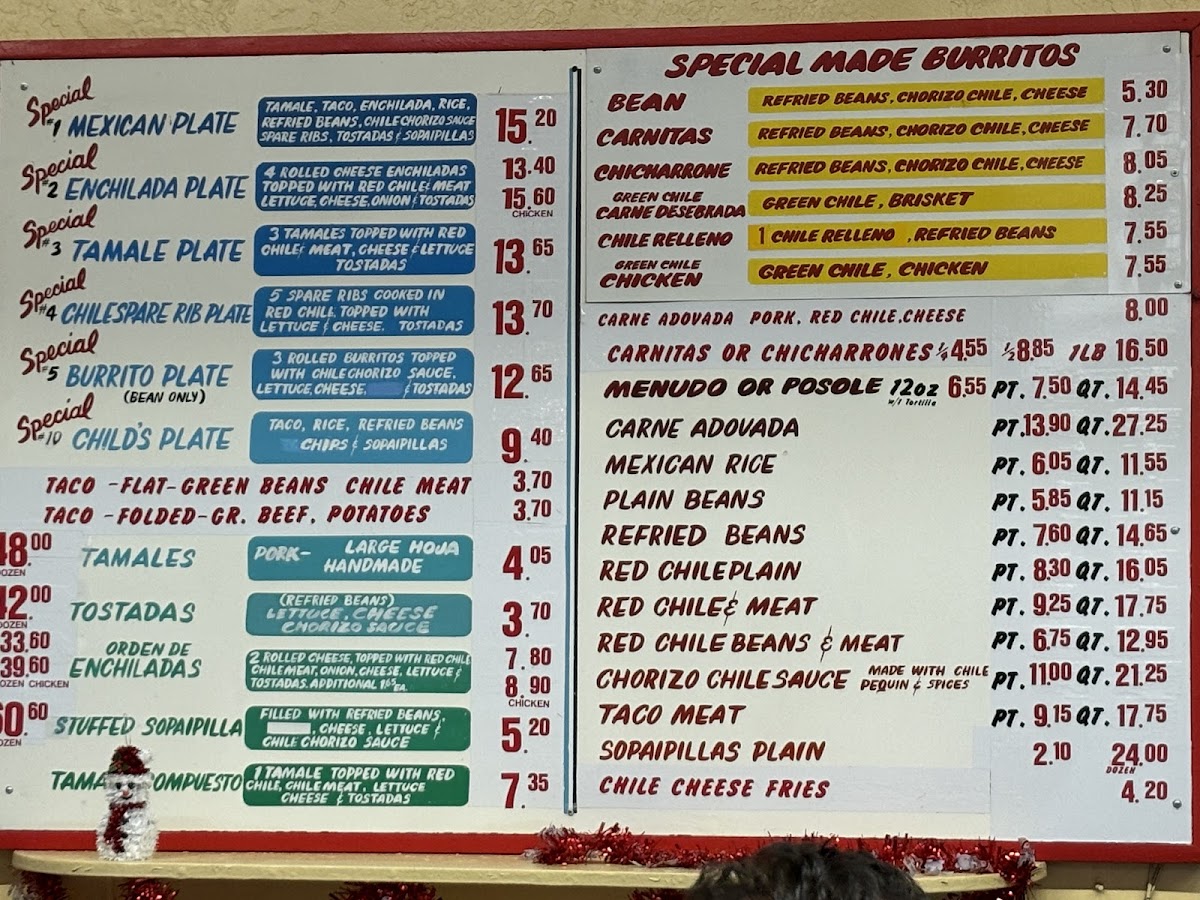 Special
#1 MEXICAN PLATE
TAMALE, TACO, ENCHILADA, RICE,
REFRIED BEANS, CHILE CHORIZO SAUCE
SPARE RIBS, TOSTADAS & SOPAIPILLAS
15.20
Special
#2 ENCHILADA PLATE
4 ROLLED CHEESE ENCHILADAS
TOPPED WITH RED CHILE & MEAT
LETTUCE, CHEESE, ONION & TOSTADAS
13.40
15.60
CHICKEN
Special
#3 TAMALE PLATE
3 TAMALES TOPPED WITH RED
CHILE & MEAT, CHEESE & LETTUCE
TOSTADAS
13.65
Special
#4 CHILE SPARE RIB PLATE
5 SPARE RIBS COOKED IN
RED CHILI, TOPPED WITH
LETTUCE & CHEESE. TOSTADAS
13.70
Special
#5 BURRITO PLATE
(BEAN ONLY)
3 ROLLED BURRITOS TOPPED
WITH CHILE CHORIZO SAUCE,
LETTUCE, CHEESE, & TOSTADAS
12.65
Special
#10 CHILD'S PLATE
TACO, RICE, REFRIED BEANS
CHIPS & SOPAIPILLAS
9.40
TACO -FLAT-GREEN BEANS CHILE MEAT 3.70
TACO -FOLDED-GR. BEEF, POTATOES 3.70
8.00
DOZEN
TAMALES
PORK- LARGE HOJA
HANDMADE
4.05
2.00
DOZEN
TOSTADAS
(REFRIED BEANS)
LETTUCE, CHEESE
CHORIZO SAUCE
3.70
33.60
39.60
DOZEN CHICKEN
ORDEN DE
ENCHILADAS
2 ROLLED CHEESE, TOPPED WITH RED CHILE
CHILE MEAT, ONION, CHEESE, LETTUCE &
TOSTADAS. ADDITIONAL 1.65 EA.
7.80
8.90
CHICKEN
0.60
DOZEN
STUFFED SOPAIPILLA
FILLED WITH REFRIED BEANS,
, CHEESE, LETTUCE &
CHILE CHORIZO SAUCE
5.20
TAMA OMPUESTO
1 TAMALE TOPPED WITH RED
CHILE, CHILE MEAT, LETTUCE
CHEESE & TOSTADAS
7.35
SPECIAL MADE BURRITOS
BEAN REFRIED BEANS, CHORIZO CHILE, CHEESE 5.30
CARNITAS REFRIED BEANS, CHORIZO CHILE, CHEESE 7.70
CHICHARRONE REFRIED BEANS, CHORIZO CHILE, CHEESE 8.05
GREEN CHILE
CARNE DESEBRADA GREEN CHILE, BRISKET 8.25
CHILE RELLENO 1 CHILE RELLENO, REFRIED BEANS 7.55
GREEN CHILE
CHICKEN GREEN CHILE, CHICKEN 7.55
CARNE ADOVADA PORK, RED CHILE, CHEESE 8.00
CARNITAS OR CHICHARRONES 1/4 4.55 1/2 8.85 1LB 16.50
MENUDO OR POSOLE 12oz 6.55 PT. 7.50 QT. 14.45
w/1 Tortilla
CARNE ADOVADA PT. 13.90 QT. 27.25
MEXICAN RICE PT. 6.05 QT. 11.55
PLAIN BEANS PT. 5.85 QT. 11.15
REFRIED BEANS PT. 7.60 QT. 14.65
RED CHILE PLAIN PT. 8.30 QT. 16.05
RED CHILE & MEAT PT. 9.25 QT. 17.75
RED CHILE BEANS & MEAT PT. 6.75 QT. 12.95
CHORIZO CHILE SAUCE MADE WITH CHILE
PEQUIN & SPICES PT. 11.00 QT. 21.25
TACO MEAT PT. 9.15 QT. 17.75
SOPAIPILLAS PLAIN 2.10 24.00
DOZEN
CHILE CHEESE FRIES 4.20